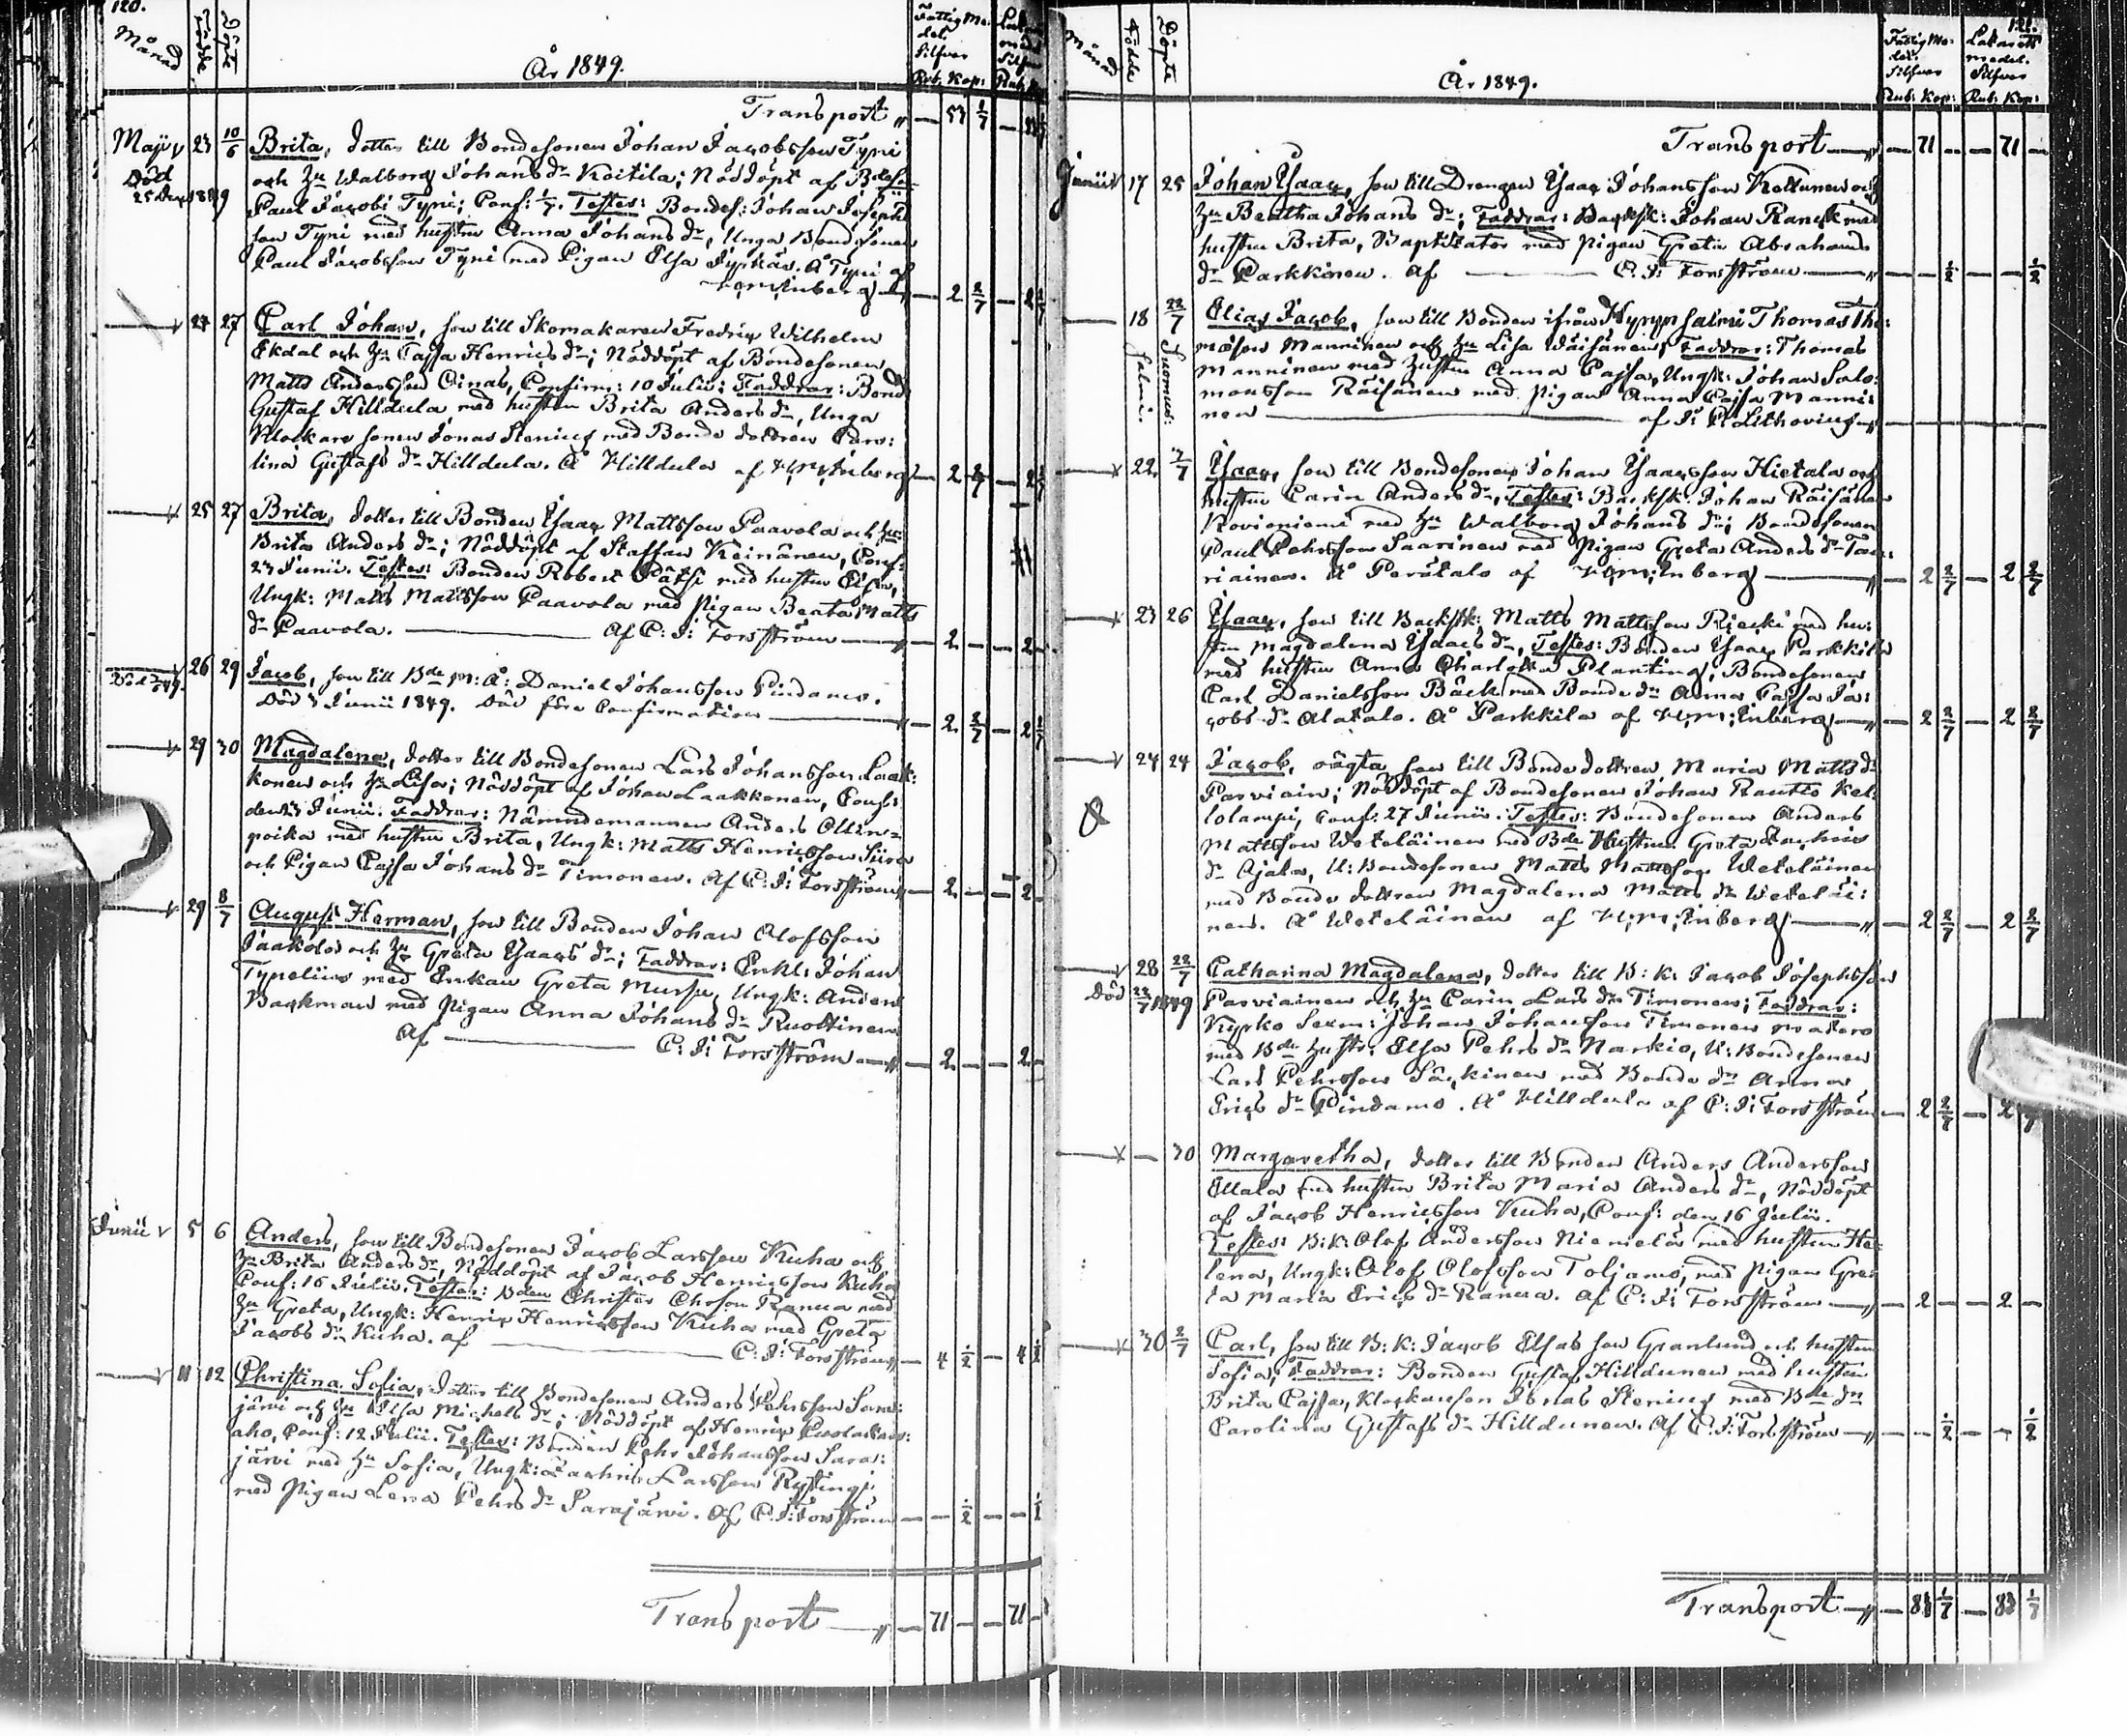 120.
Månad
Födde
Döpte
År 1849.
Fattig Me-
del.
Silfver
Rub. Kop:
Transport " — 53 1/7 —
Maji 23 10/6 Brita, dotter till Bondesonen Johan Jacobsson Tyni
Död och hu Walborg Johans dr Koitila; Nöddöpt af
1849 Paul Jacobi Tyni; Conf: 1/7. Testes: Bondes: Johan Joseph
son Tyni med hustru Anna Johans dr, Unga Bondesonen
Paul Jacobsson Tyni med Pigan Elsa Jyrkäs. Å Tyni af
— 2 2/7 — 2
27 Carl Johan, son till Skomakaren Fredric Wilhelm
Ekdal och hu Cajsa Henrics dr; Nöddöpt af Bondesonen
Matts Andersson Oinas, Confirm: 10 Julii: Faddrar: Bond
Gustaf Hilldula med hustru Brita Anders dr, Unga
Klockare sonen Jonas Stenius med Bonde dottren Caro:
lina Gustafs dr Hilldula. Å Hilldula af — 2 2/7 — 2
25 27 Brita, dotter till Bonden Isaac Mattsson Paavola och hu
Brita Anders dr; Nöddöpt af Staffan Keinänen, Conf:
23 Junii. Testes: Bonden Robert Pätsi med hustru Elsa,
Ungk: Matts Mattsson Paavola med Pigan Beata Matts
dr Paavola. — Af C: J: Forsström — " — 2 — — 2
26 29 Jacob, son till Bde M: Å: Daniel Johansson Pindamo.
Död 3 Junii 1849. Död före Confirmation — " — 2 2/7 — 2
29 30 Magdalena, dotter till Bondesonen Lars Johansson Laak:
konen och hu Lisa; Nöddöpt af Johan Laakkonen, Conf:
Junii. Faddrar: Nämndemannen Anders Ollin-
poika med hustru Brita, Ungk: Matts Henricsson Siira
och Pigan Cajsa Johans dr Timonen. Af C: J: Forsström — 2 — — 2
29 8/7 August Herman, son till Bonden Johan Olofsson
Jaakola och hu Greta Isaacs dr; Faddrar: Enkl: Johan
Typelius med Enkan Greta Mursu, Ungk: Anders
Backman med Pigan Anna Johans dr Ruottinen
Af — C: J: Forsström — " — 2 — — 2 —
Junii 5 6 Anders, son till Bondesonen Jacob Larsson Kuha och
hu Brita Anders dr, Nöddöpt af Jacob Henricsson Kuha
Conf: 16 Julii. Testes: Bden Christer Ranua med
hu Greta, Ungk: Henric Henricsson Kuha med Greta
Jacobs dr Kuha. af — C: J: Forsström — 4 1/2 — 4 1/2
11 12 Christina Sofia, dotter till Bondesonen Anders Pehrsson Sara:
järvi och hu Elsa Michels dr; Nöddöpt af Henric
aho, Conf: 12 Julii. Testes: Bonden Pehr Johansson Sara:
järvi med hu Sofia, Ungk: Zachris Larsson Rytingi
med Pigan Lena Pehrs dr Sarajärvi. Af C: J: Forsström — — 1/2 — — 1/2
Transport — " — 71 — — 71 —
121.
Månad
Födde
Döpte
År 1849.
Fattig Me-
del.
Silfver
Rub: Kop:
Lazaretts
medel.
Silfver
Rub: Kop:
Transport — " — 71 — — 71 —
Junii 17 25 Johan Isaac, son till Drengen Isaac Johansson Kettunen och
hu Beatha Johans dr; Faddrar: Backsk: Johan Ranck med
hustru Brita, Baptizator med pigan Greta Abrahams
dr Parkkinen. af — C: J: Forsström — " — — 1/2 — — 1/2
18 22/7 Suomus: Salmi. Elias Jacob, son till Bonden ifrån Hyrynsalmi Thomas Tho:
masson Manninen och hu Lisa Wäisänen; Faddrar: Thomas
Manninen med hustru Anna Cajsa, Ungk: Johan Salo:
monsson Räisänen med pigan Anna Cajsa Manni:
nen — af J: P. Lithovius — "
22 Isaac, son till Bondesonen Johan Isaacsson Hietala och
hustru Carin Anders dr, Testes: Backsk: Johan Räisänen
Koviomiemi med hu Walborg Johans dr; Bondesonen
Paul Pehrsson Saarinen med Pigan Greta Anders dr
riainen. Å Perätalo af — " — 2 2/7 — 2 2/7
23 26 Isaac, son till Backsk: Matts Mattsson Riecki med hu:
stru Magdalena Isaacs dr, Testes: Bonden Isaac Parkkila
med hustru Anna Charlotta Planting, Bondesonen
Carl Danielsson Bäck med Bonde dr Anna Cajsa Ja:
cobs dr Alatalo. Å Parkkila af — " — 2 2/7 — 2 2/7
24 24 Jacob, oägta son till Bonde dottren Maria Matts dr
Parviain; Nöddöpt af Bondesonen Johan Rautio Kel:
lolampi, Conf: 27 Junii. Testes: Bondesonen Anders
Mattsson Weteläinen med Bde Hustru Greta Zachris
dr Ajala, U: Bondesonen Matts Mattsson Weteläinen
med Bonde dottren Magdalena Matts dr Weteläi:
nen. Å Weteläinen af — " — 2 2/7 — 2 2/7
28 22/7 Catharina Magdalena, dotter till B: k: Jacob Josephsson
Död 1849 Parviainen och hu Carin Lars dr Timonen; Faddrar:
Kyrko Sexm: Johan Johansson Timonen
med Bde hustr: Elsa Pehrs dr Narkio, U: Bondesonen
Lars Pehrsson Säckinen med Bonde dr Anna
Erics dr Pindamo. Å Hilldula af C: J: Forsström — 2 2/7 — 2 2/7
— 30 Margaretha, dotter till Bonden Anders Andersson
Illala med hustru Brita Maria Anders dr, Nöddöpt
af Jacob Henricsson Kuha, Conf: den 16 Julii.
Testes: B: k: Olof Andersson Niemelä med hustru He:
lena, Ungk: Olof Olofsson Toljamo, med pigan Gre:
ta Maria Erics dr Ranua. Af C: J: Forsström — " — 2 — — 2 —
30 2/7 Carl, son till B: k: Jacob Elias son Granlund och hustru
Sofia, Faddrar: Bonden Gustaf Hilldunen med hustru
Brita Cajsa, Klockareson Jonas Stenius med Bde dr
Carolina Gustafs dr Hilldunen. Af C: J: Forsström — " — — 1/2 — — 1/2
Transport — " — 83 1/7 — 83 1/7